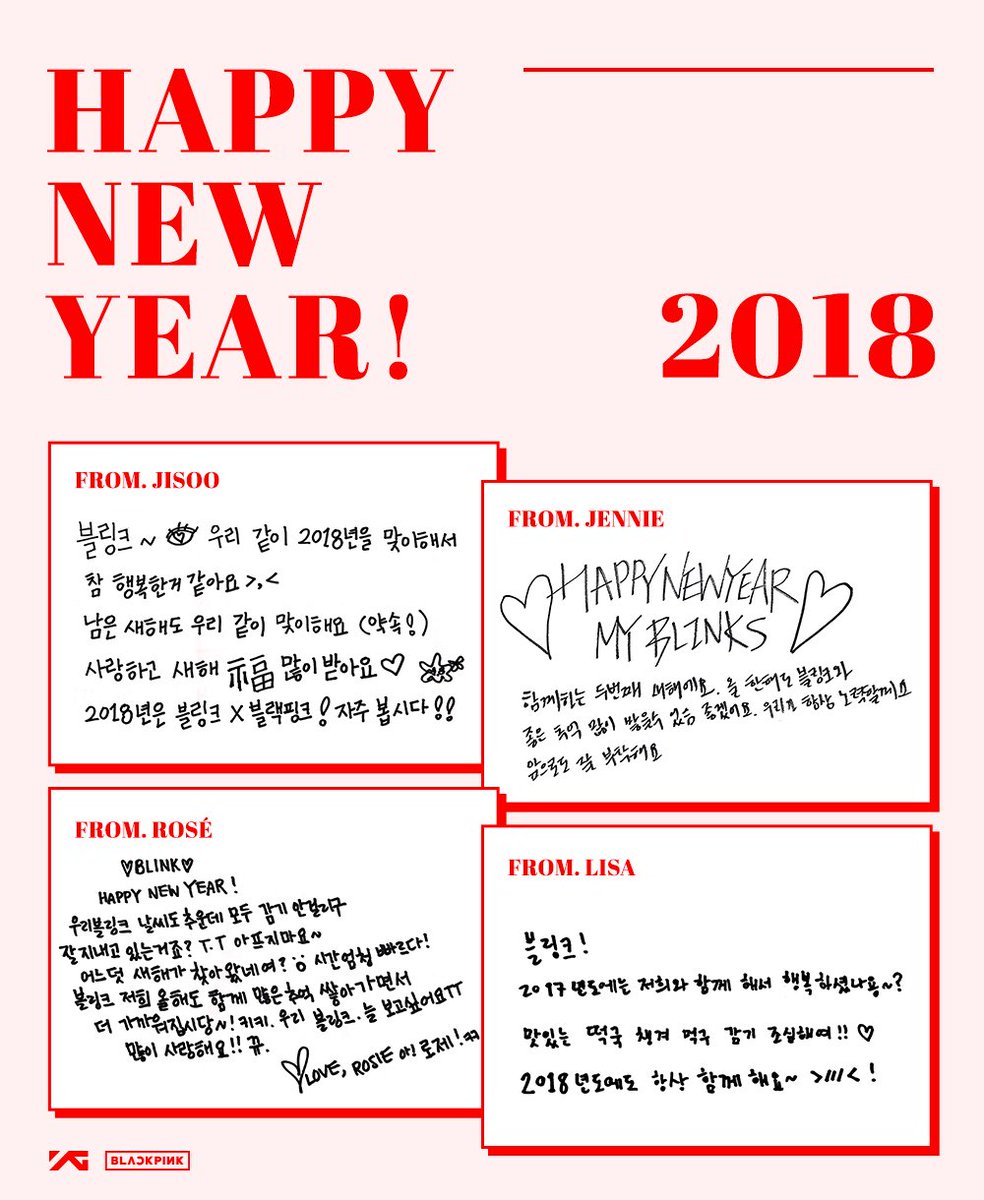 HAPPY
NEW
YEAR!
2018
FROM. JISOO
블링크~ 우리 같이 2018년을 맞이해서
참 행복한거 같아요 >,<
남은 새해도 우리 같이 맞이해요 (약속!)
사랑하고 새해 福 많이 받아요♡
2018년은 블링크 X 블랙핑크! 자주 봅시다!!
FROM. JENNIE
♡HAPPY NEW YEAR♡
MY BLINKS
함께하는 두번째 새해에요. 올 한해도 블링크와
좋은 추억 많이 쌓을수 있음 좋겠어요. 우리가 항상 노력할게요
앞으로도 잘 부탁해요
FROM. ROSÉ
♡BLINK♡
HAPPY NEW YEAR!
우리블링크 날씨도 추운데 모두 감기 안걸리구
잘지내고 있는거죠? T.T 아프지마요~
어느덧 새해가 찾아왔네여? 시간엄청 빠르다!
블링크 저희 올해도 함께 많은 추억 쌓아가면서
더 가까워집시당~! 키키. 우리 블링크. 늘 보고싶어요ㅠㅠ
많이 사랑해요!! 뀨.
♡LOVE, ROSIE 아! 로제! ㅋㅋ
FROM. LISA
블링크!
2017년도에는 저희와 함께 해서 행복하셨나용~?
맛있는 떡국 챙겨 먹구 감기 조심해여!! ♡
2018년도에도 항상 함께 해요~ >///< !
YG BLACKPINK